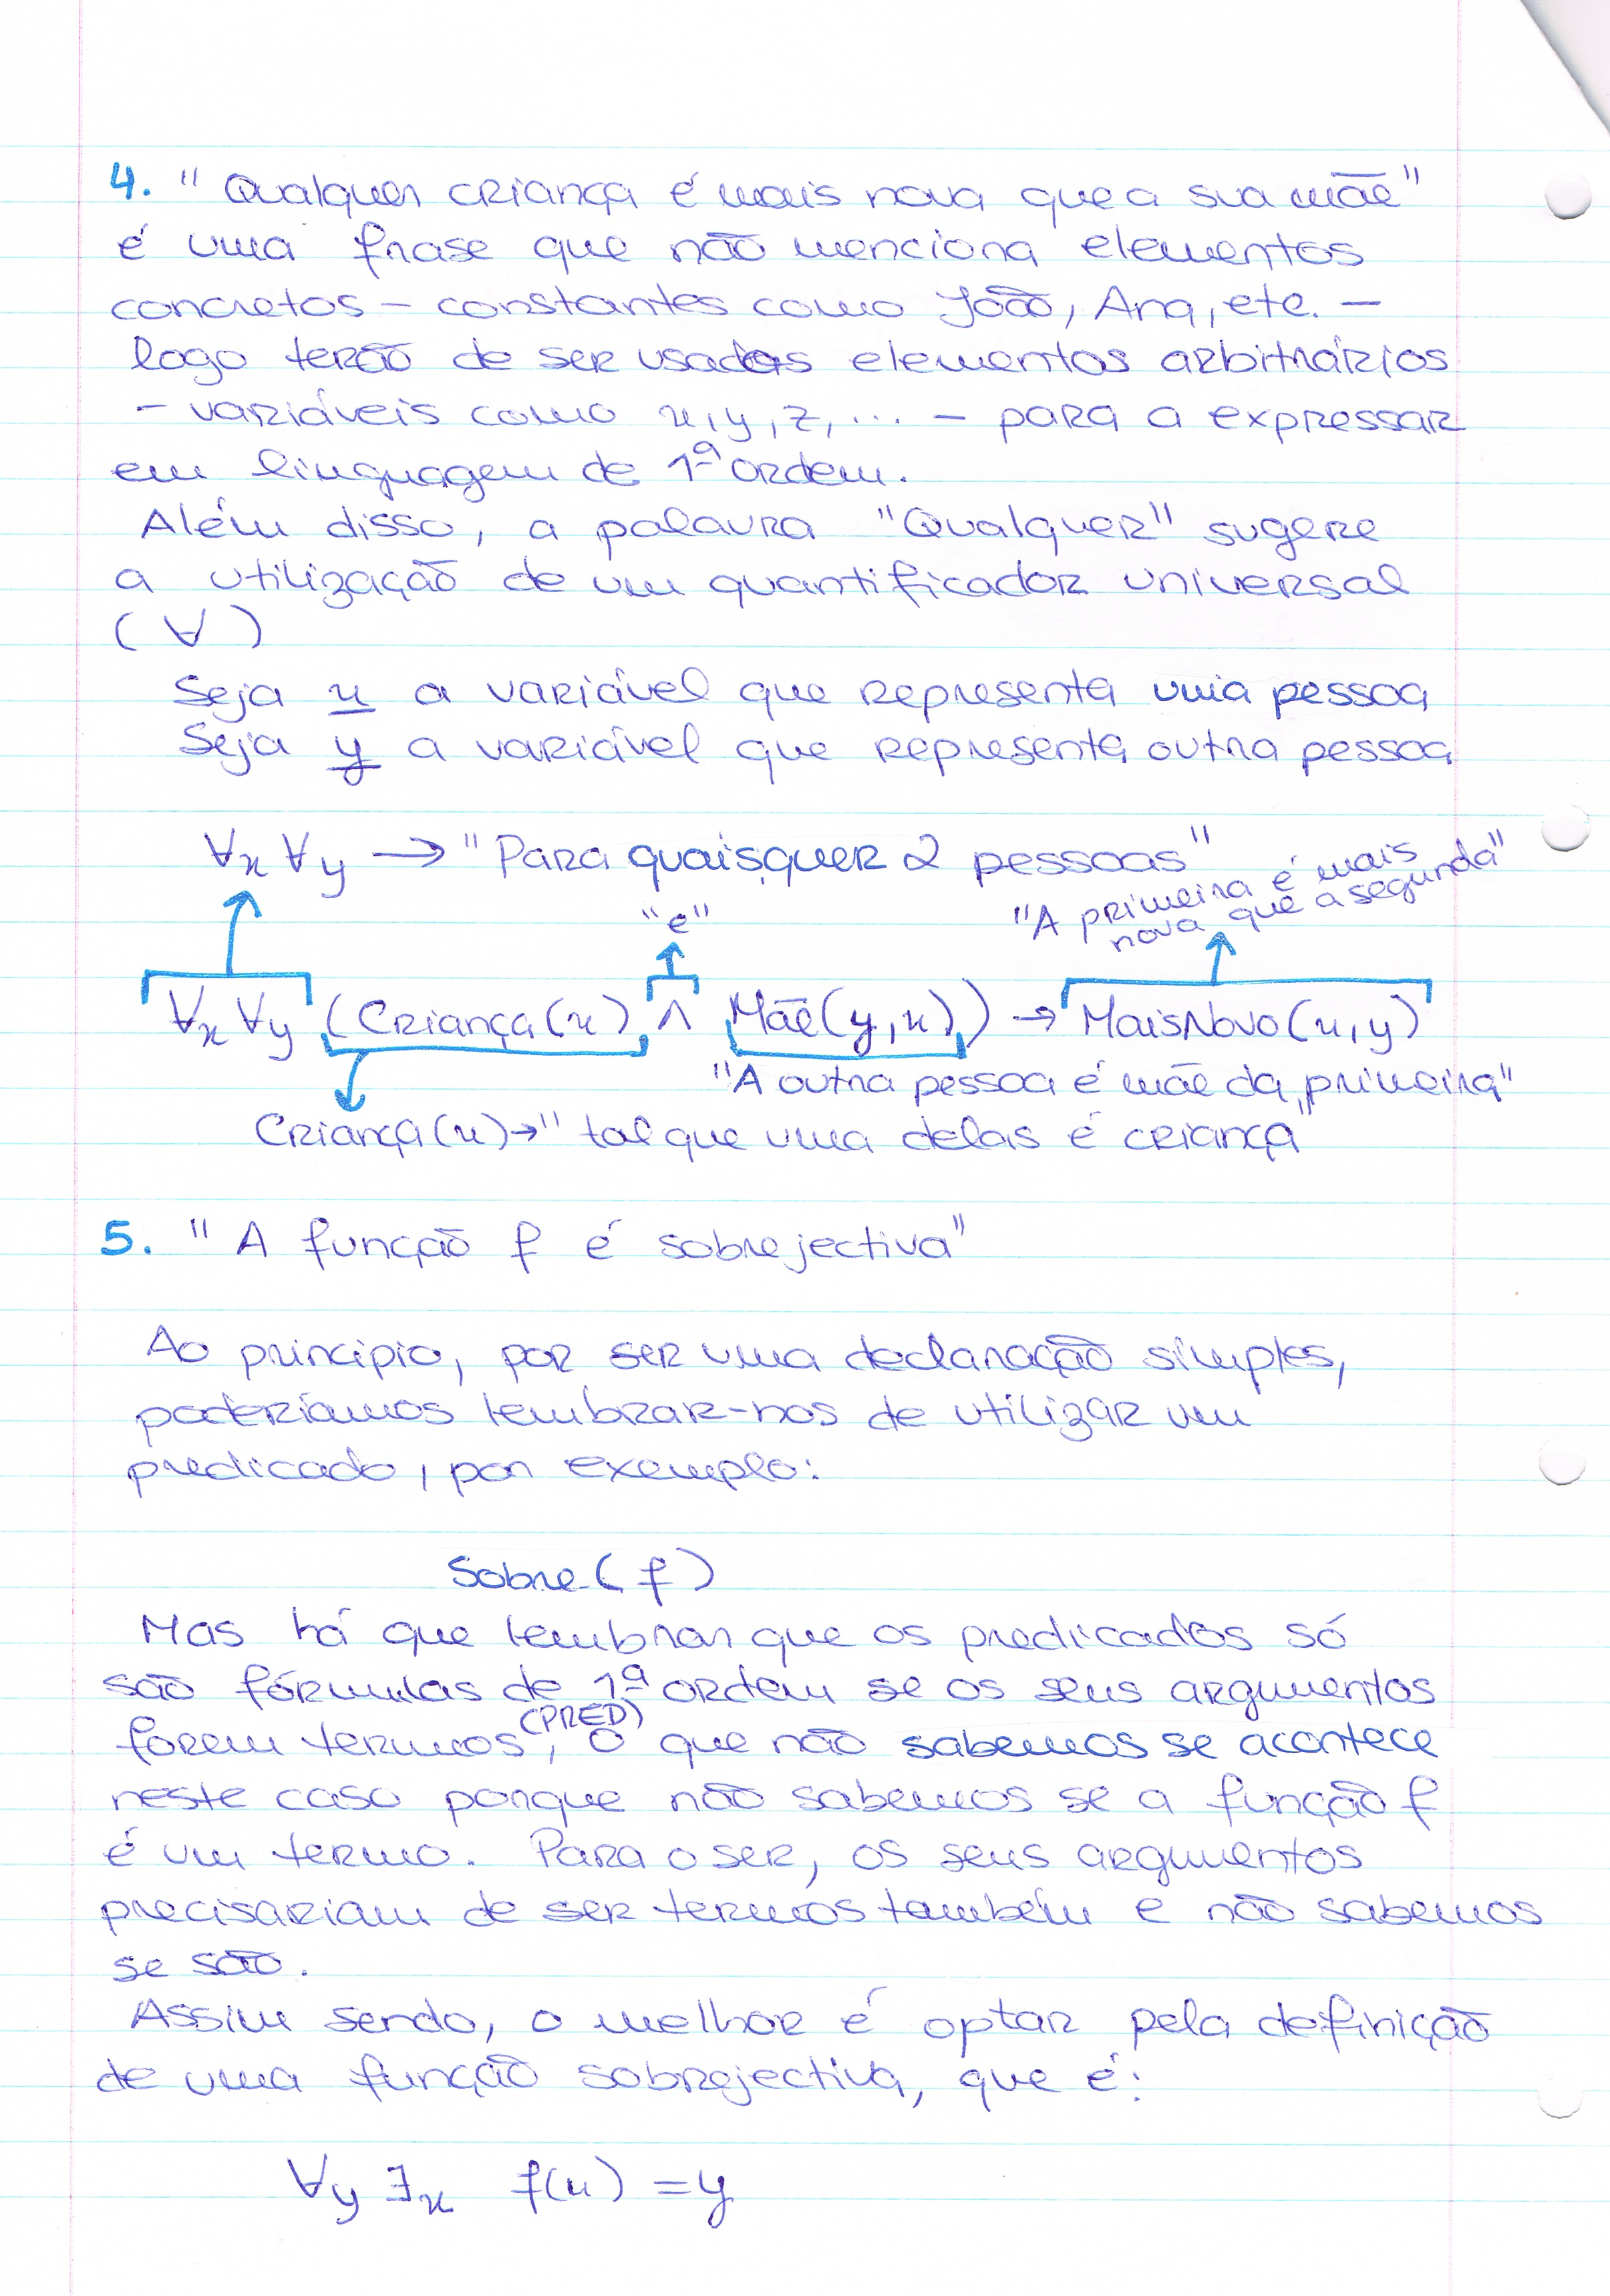 4. "Qualquer criança é mais nova que a sua mãe"
é uma frase que não menciona elementos
concretos – constantes como João, Ana, etc. –
logo terão de ser usados elementos arbitrários
– variáveis como x, y, z, ... – para a expressar
em linguagem de 1ª ordem.
Além disso, a palavra "Qualquer" sugere
a utilização de um quantificador universal
(∀)
Seja x a variável que representa uma pessoa
Seja y a variável que representa outra pessoa
∀x ∀y → "Para quaisquer 2 pessoas"
"A primeira é mais
nova que a segunda"
"e"
∀x ∀y (Criança(x) ∧ Mãe(y,x)) → MaisNovo(x,y)
"A outra pessoa é mãe da primeira"
Criança(x) → "tal que uma delas é criança"
5. "A função f é sobrejectiva"
Ao princípio, por ser uma declaração simples,
poderíamos lembrar-nos de utilizar um
predicado, por exemplo:
Sobre(f)
Mas há que lembrar que os predicados só
são fórmulas de 1ª ordem se os seus argumentos
forem termos (PRED), o que não sabemos se acontece
neste caso porque não sabemos se a função f
é um termo. Para o ser, os seus argumentos
precisariam de ser termos também e não sabemos
se são.
Assim sendo, o melhor é optar pela definição
de uma função sobrejectiva, que é:
∀y ∃x f(x) = y